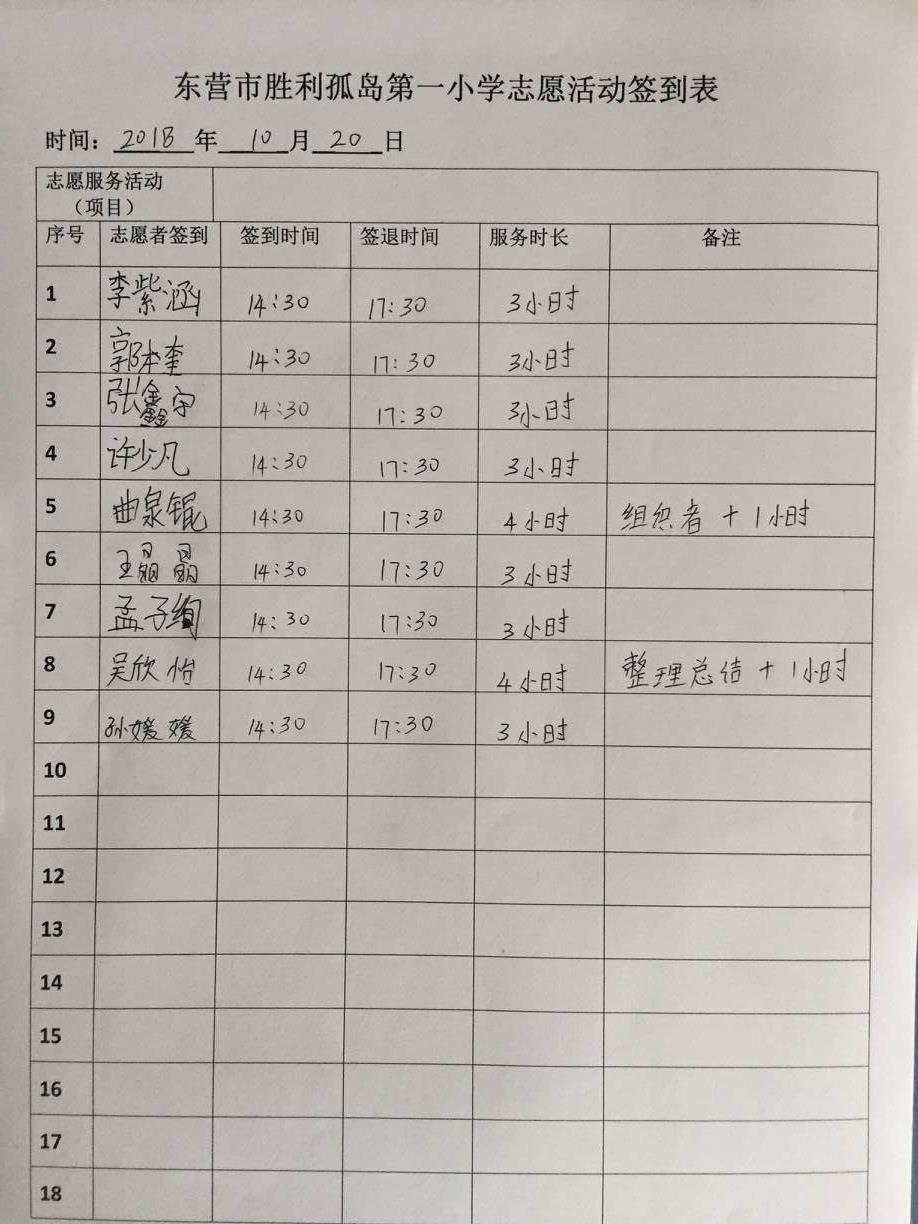 东营市胜利孤岛第一小学志愿活动签到表
时间：2018年10月20日
志愿服务活动
（项目）
序号 志愿者签到 签到时间 签退时间 服务时长 备注
1 李紫涵 14:30 17:30 3小时
2 郭本奎 14:30 17:30 3小时
3 张鑫宇 14:30 17:30 3小时
4 许少凡 14:30 17:30 3小时
5 曲泉锟 14:30 17:30 4小时 组织者+1小时
6 王 14:30 17:30 3小时
7 孟子绚 14:30 17:30 3小时
8 吴欣怡 14:30 17:30 4小时 整理总结+1小时
9 孙媛媛 14:30 17:30 3小时
10
11
12
13
14
15
16
17
18